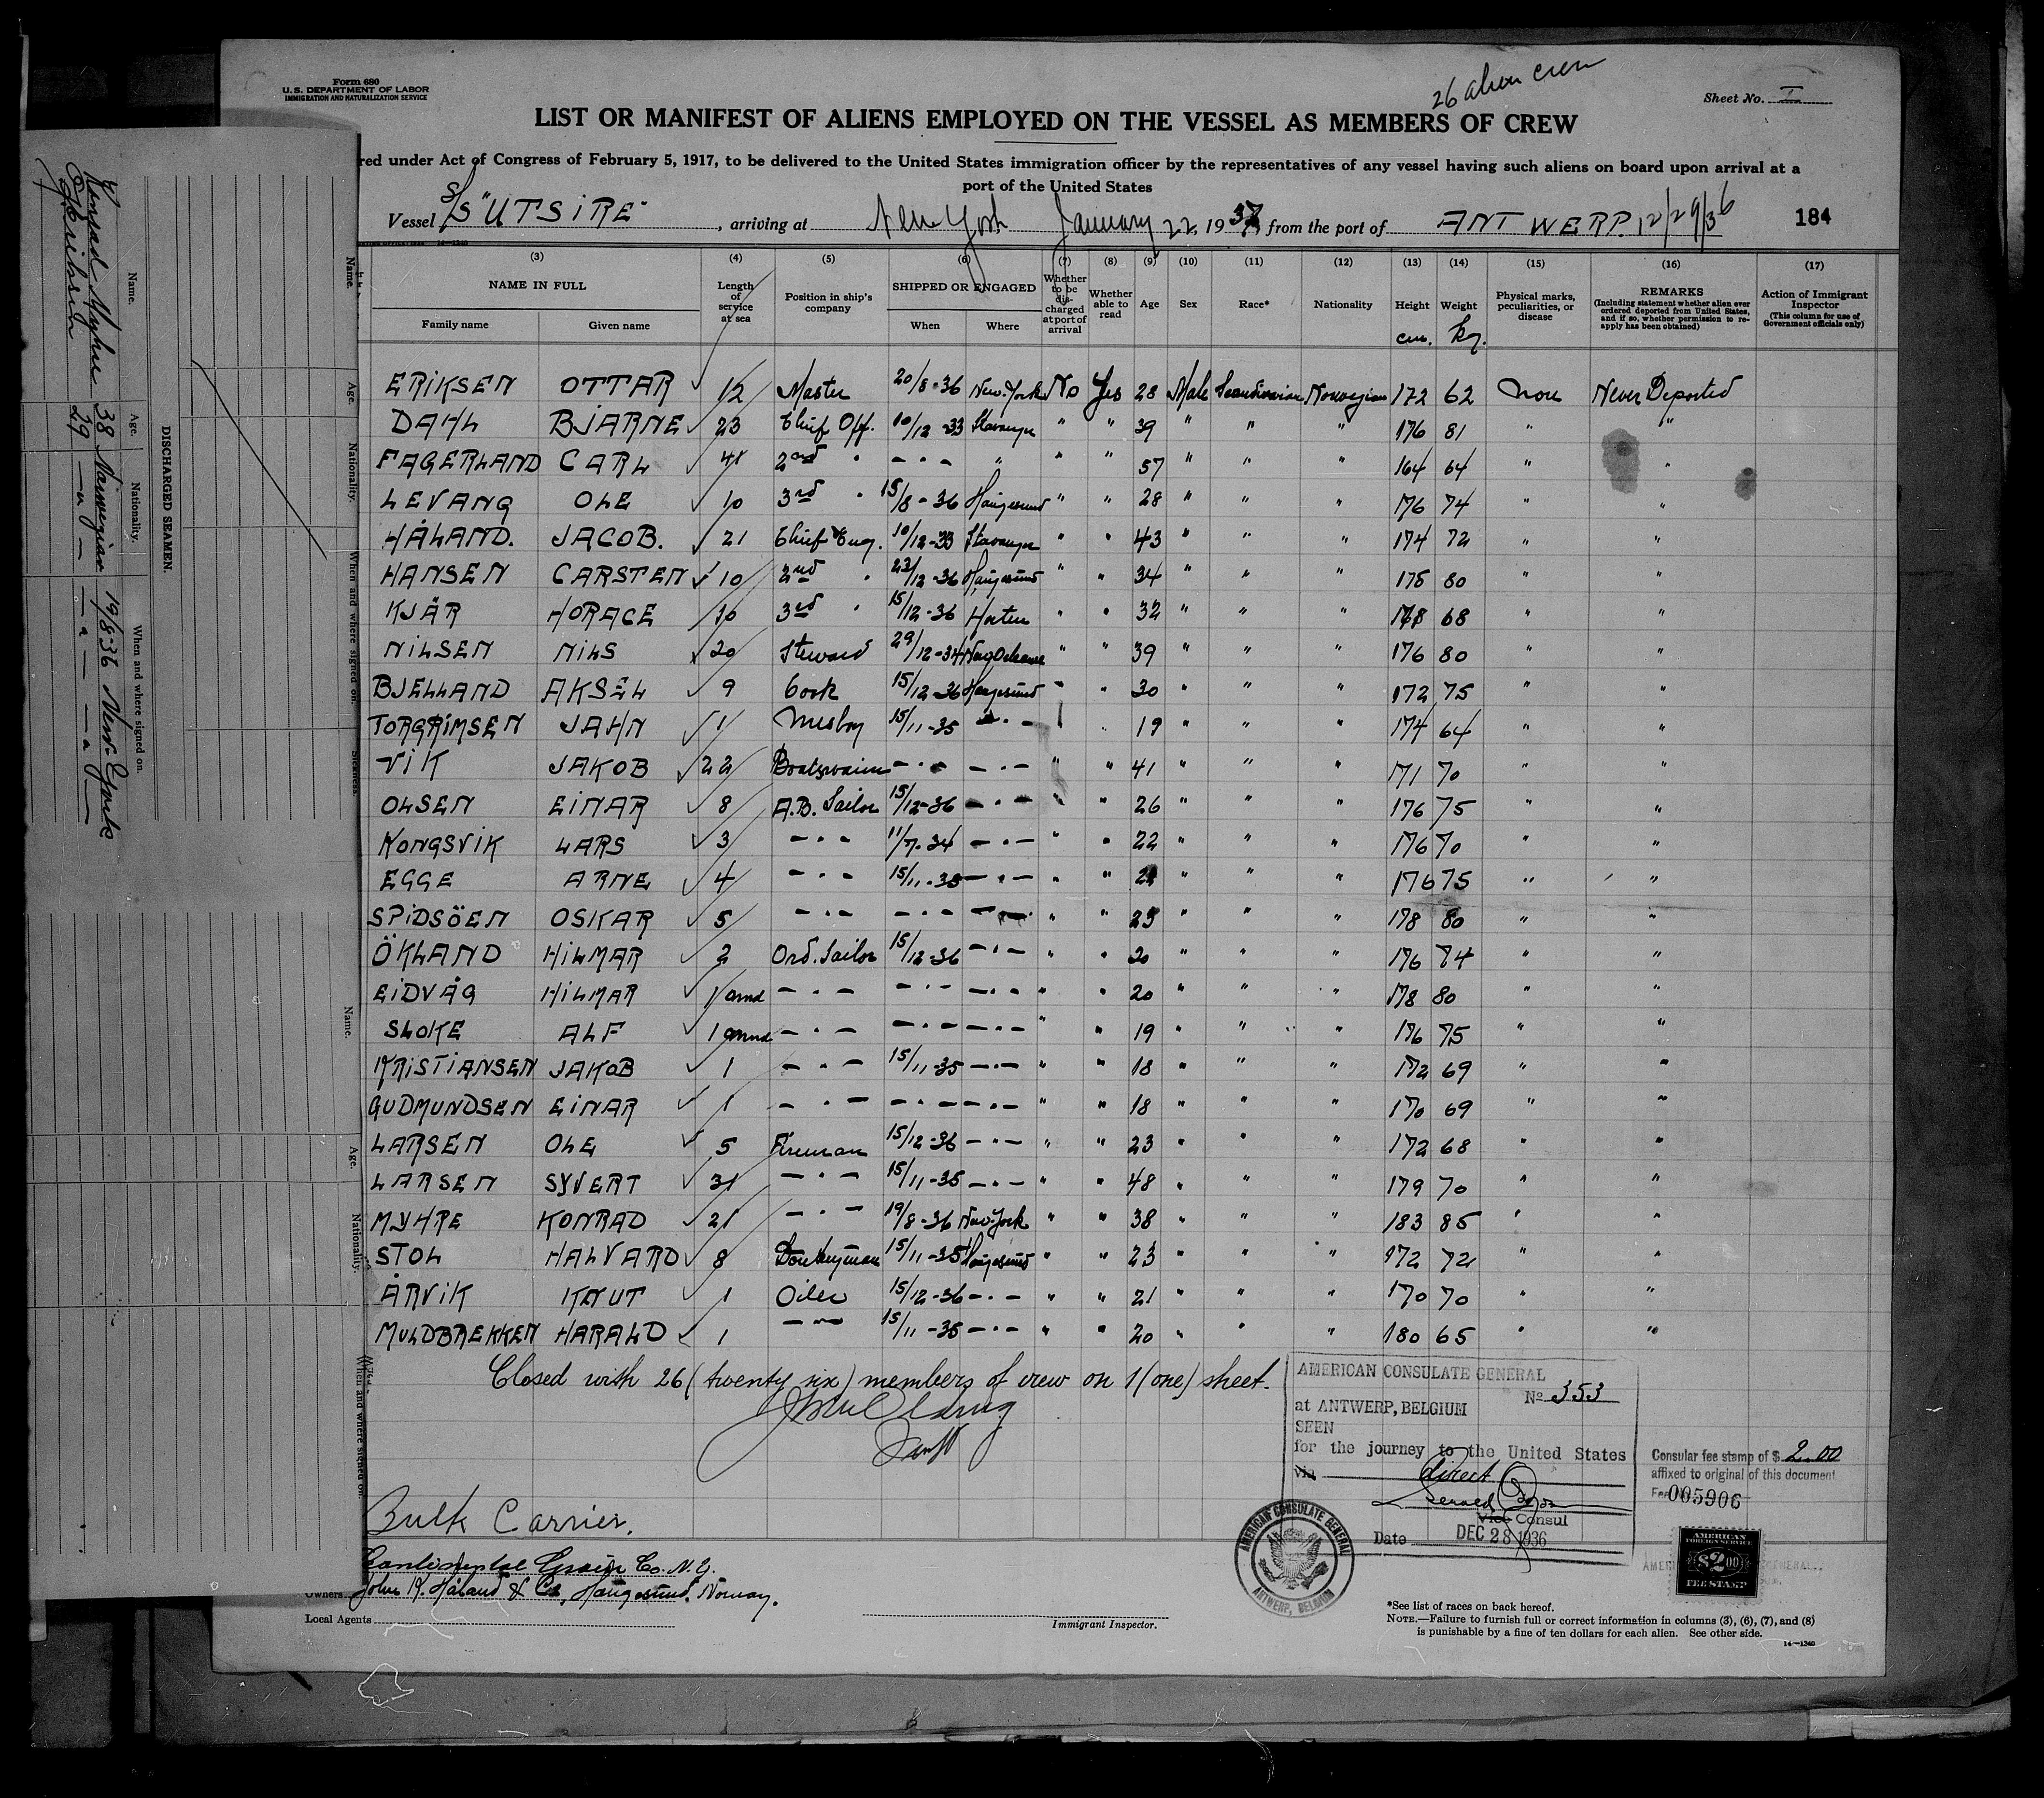 Form 680
U.S. DEPARTMENT OF LABOR
IMMIGRATION AND NATURALIZATION SERVICE
26 alien crew
Sheet No. I
LIST OR MANIFEST OF ALIENS EMPLOYED ON THE VESSEL AS MEMBERS OF CREW
red under Act of Congress of February 5, 1917, to be delivered to the United States immigration officer by the representatives of any vessel having such aliens on board upon arrival at a
port of the United States
Vessel S/S "UTSIRE" , arriving at New York January 22, 1937, from the port of ANTWERP. 12/29/36 184
(3) (4) (5) (6) (7) (8) (9) (10) (11) (12) (13) (14) (15) (16) (17)
NAME IN FULL
Family name Given name
Length of service at sea
Position in ship's company
SHIPPED OR ENGAGED
When Where
Whether to be discharged at port of arrival
Whether able to read
Age Sex Race* Nationality
Height Weight
cm. kg.
Physical marks, peculiarities, or disease
REMARKS
(Including statement whether alien ever ordered deported from United States, and if so, whether permission to reapply has been obtained)
Action of Immigrant Inspector
(This column for use of Government officials only)
ERIKSEN OTTAR 12 Master 20/8-36 New-York No Yes 28 Male Scandinavian Norwegian 172 62 None Never Deported
DAHL BJARNE 23 Chief Off. 10/12-33 Stavanger " " 39 " " " 176 81 " "
FAGERLAND CARL 41 2nd " — " — " " " 57 " " " 164 64 " "
LEVANG OLE 10 3rd " 15/8-36 Haugesund " " 28 " " " 176 74 " "
HÅLAND. JACOB. 21 Chief Eng. 10/12-33 Stavanger " " 43 " " " 174 72 " "
HANSEN CARSTEN 10 2nd " 23/12-36 Haugesund " " 34 " " " 175 80 " "
KJÄR HORACE 10 3rd " 15/12-36 Horten " " 32 " " " 178 68 " "
NILSEN NILS 20 Steward 29/12-34 New Orleans " " 39 " " " 176 80 " "
BJELLAND AKSEL 9 Cook 15/12-36 Haugesund " " 30 " " " 172 75 " "
TORGRIMSEN JAHN 1 Messboy 15/11-35 — " — " " 19 " " " 174 64 " "
VIK JAKOB 22 Boatswain — " — — " — " " 41 " " " 171 70 " "
OLSEN EINAR 8 A.B. Sailor 15/12-36 — " — " " 26 " " " 176 75 " "
KONGSVIK LARS 3 — " — 11/7-34 — " — " " 22 " " " 176 70 " "
EGGE ARNE 4 — " — 15/11-35 — " — " " " " " 176 75 " "
SPIDSÖEN OSKAR 5 — " — — " — — " — " " 25 " " " 178 80 " "
ÖKLAND HILMAR 2 Ord. Sailor 15/12-36 — " — " " 20 " " " 176 74 " "
EIDVÅG HILMAR 1 — " — — " — — " — " " 20 " " " 178 80 " "
SLOKE ALF 1 — " — — " — — " — " " 19 " " " 176 75 " "
KRISTIANSEN JAKOB 1 — " — 15/11-35 — " — " " 18 " " " 172 69 " "
GUDMUNDSEN EINAR 1 — " — — " — — " — " " 18 " " " 170 69 " "
LARSEN OLE 5 Fireman 15/12-36 — " — " " 23 " " " 172 68 " "
LARSEN SYVERT 31 — " — 15/11-35 — " — " " 48 " " " 179 70 " "
MYHRE KONRAD 21 — " — 19/8-36 New-York " " 38 " " " 183 85 " "
STOL HALVARD 8 Donkeyman 15/11-35 Haugesund " " 23 " " " 172 72 " "
ÅRVIK KNUT 1 Oiler 15/12-36 — " — " " 21 " " " 170 70 " "
MULDBREKKEN HARALD 1 — " — 15/11-35 — " — " " 20 " " " 180 65 " "
Closed with 26 (twenty six) members of crew on 1 (one) sheet.
AMERICAN CONSULATE GENERAL
No 353
at ANTWERP, BELGIUM
SEEN
for the journey to the United States
via direct
Vice Consul
Date DEC 28 1936
Consular fee stamp of $ 2.00
affixed to original of this document
Fee No 005906
AMERICAN CONSULATE GENERAL
ANTWERP, BELGIUM
AMERICAN
FOREIGN SERVICE
$2.00
FEE STAMP
Bulk Carrier.
Continental Grain Co. N.Y.
Owners John K. Håland & Co., Haugesund. Norway.
Local Agents
Immigrant Inspector.
*See list of races on back hereof.
NOTE.—Failure to furnish full or correct information in columns (3), (6), (7), and (8)
is punishable by a fine of ten dollars for each alien. See other side.
14—1240
DISCHARGED SEAMEN.
Name. Age. Nationality. When and where signed on.
Konrad Myhre 38 Norwegian 19/8-36 New-York
29 — " — — " — — " —
Name. Age. Nationality. When and where signed on. Sickness.
Name. Age. Nationality. When and where signed on.